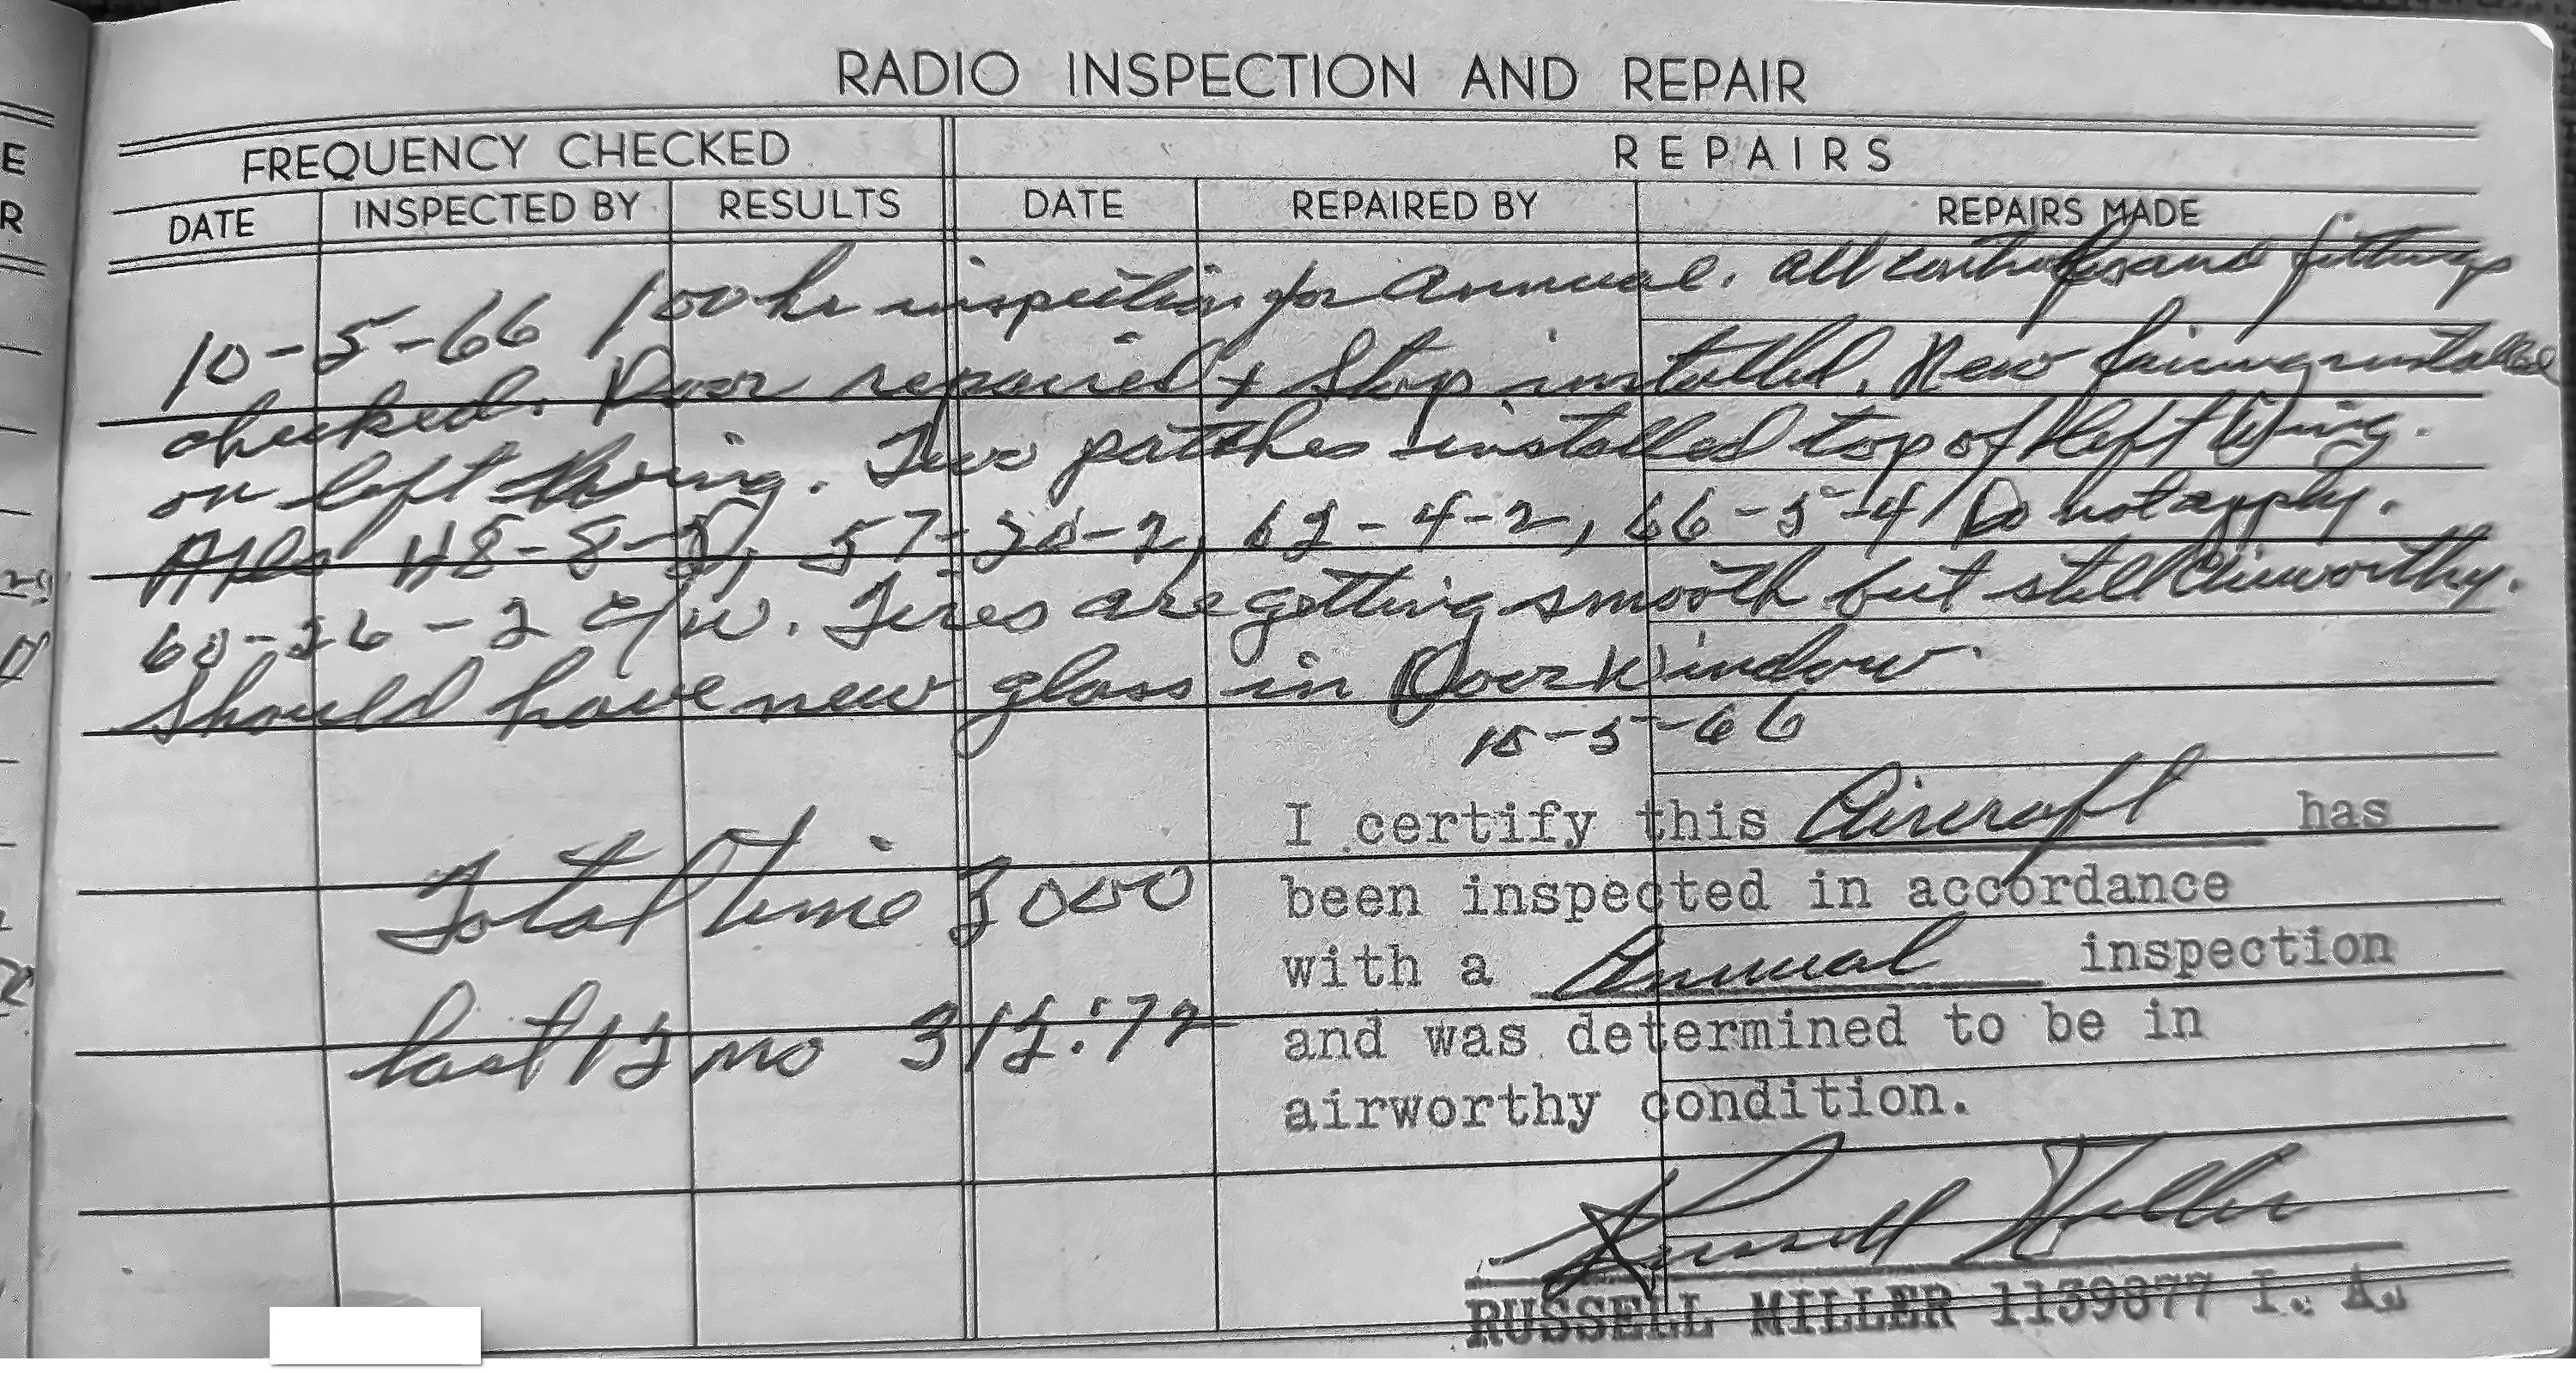 RADIO INSPECTION AND REPAIR
FREQUENCY CHECKED REPAIRS
DATE INSPECTED BY RESULTS DATE REPAIRED BY REPAIRS MADE
10-5-66 100 hr inspection for Annual. All controls and fittings
checked. Door repaired + Stop installed. New fairing installed
on left Wing. Two patches installed top of left Wing.
57-20-2, 62-4-2, 66-5-4 Do not apply.
c/w. Tires are getting smooth but still Airworthy.
Should have new glass in Door Window.
10-5-66
I certify this Aircraft has
Total Time 3000 been inspected in accordance
with a Annual inspection
last 12 mo 312:72 and was determined to be in
airworthy condition.
X Russell Miller
RUSSELL MILLER 1139877 I. A.